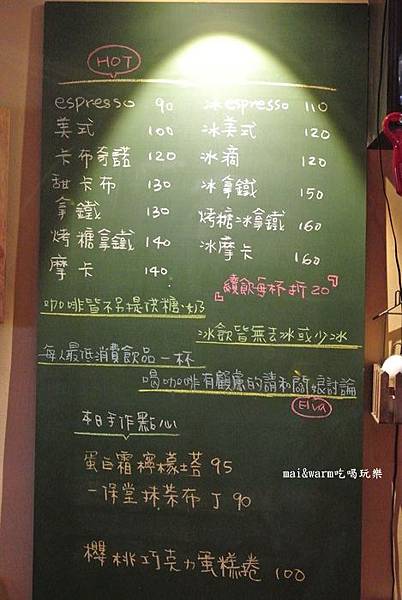 HOT
espresso 90
美式 100
卡布奇諾 120
甜卡布 130
拿鐵 130
烤糖拿鐵 140
摩卡 140
冰espresso 110
冰美式 120
冰滴 120
冰拿鐵 150
烤糖冰拿鐵 160
冰摩卡 160
『續飲每杯折20』
咖啡皆不另提供糖、奶
冰飲皆無去冰或少冰
每人最低消費飲品一杯
喝咖啡有顧慮的請和闆娘討論
Elva
本日手作點心
蛋白霜檸檬塔 95
一保堂抹茶布丁 90
櫻桃巧克力蛋糕捲 100
mai&warm吃喝玩樂